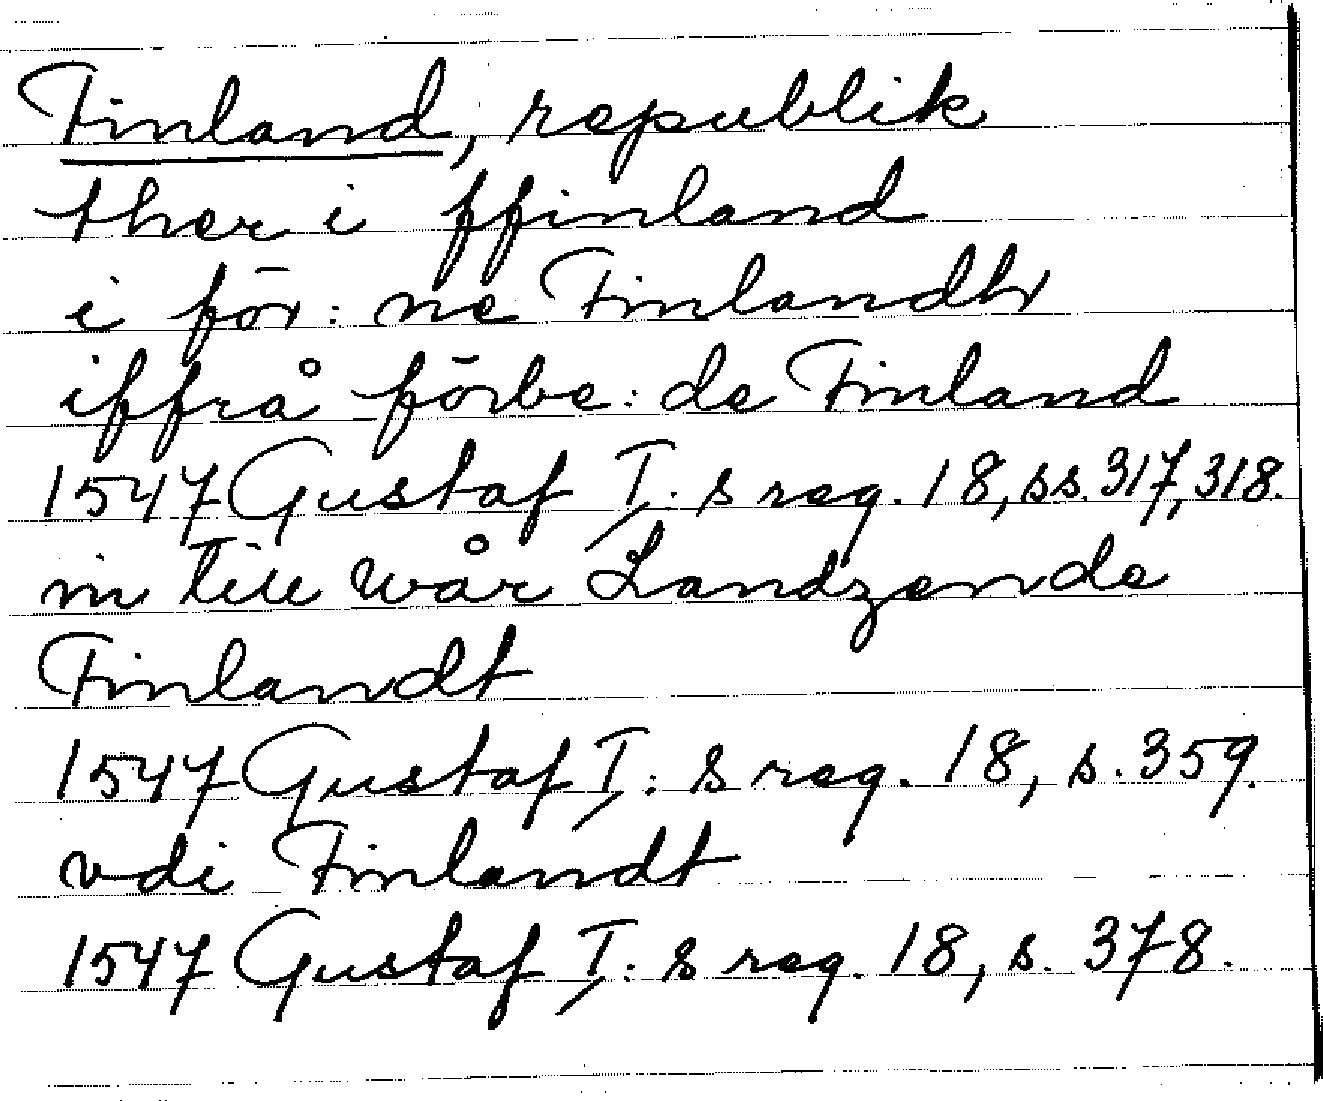 Finland, republik
ther i ffinland
i för: ne Finlandh
iffrå förbe: de Finland
1547 Gustaf I: s reg. 18, ss. 317, 318.
in till wår Landzende
Finlandt
1547 Gustaf I: s reg. 18, s. 359.
vdi Finlandt
1547 Gustaf I: s reg. 18, s. 378.